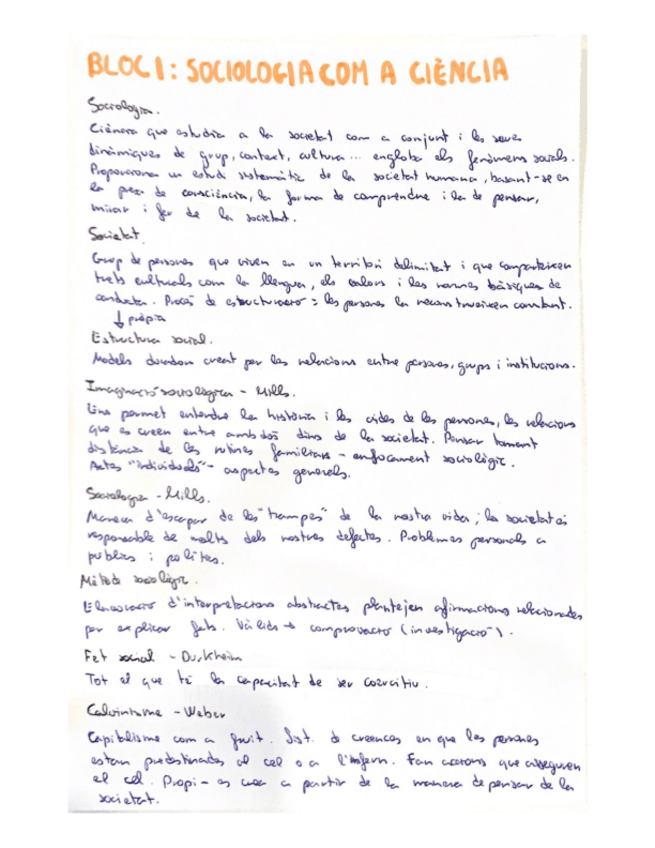 BLOC 1: SOCIOLOGIA COM A CIÈNCIA
Sociologia.
Ciència que estudia a la societat com a conjunt i les seves
dinàmiques de grup, context, cultura... engloba els fenòmens socials.
Proporciona un estudi sistemàtic de la societat humana, basant-se en
la presa de consciència, la forma de comprendre i la de pensar,
mirar i fer de la societat.
Societat.
Grup de persones que viven en un territori delimitat i que comparteixen
trets culturals com la llengua, els valors i les normes bàsiques de
conducta. Procés de estructuració = les persones la reconstrueixen constant.
↓ pròpia
Estructura social.
Models creat per les relacions entre persones, grups i institucions.
Imaginació sociològica - Mills.
Ens permet entendre la història i les vides de les persones, les relacions
que es creen entre ambdós dins de la societat. Pensar tomant
distància de les rutines familiars - enfocament sociològic.
Actes "individuals" - aspectes generals.
Sociologia - Mills.
Manera d'escapar de les "trampes" de la nostra vida; la societat és
responsable de molts dels nostres defectes. Problemes personals a
públics i polítics.
Mètode sociològic.
Elaboració d'interpretacions abstractes plantejen afirmacions relacionades
per explicar fets. Vàlids → comprovació (investigació).
Fet social - Durkheim
Tot el que té la capacitat de ser coercitiu.
Calvinisme - Weber
Capitalisme com a fruit. Sist. de creences en que les persones
estan predestinades al cel o a l'infern. Fan accions que asseguren
el cel. Propi - es crea a partir de la manera de pensar de la
societat.